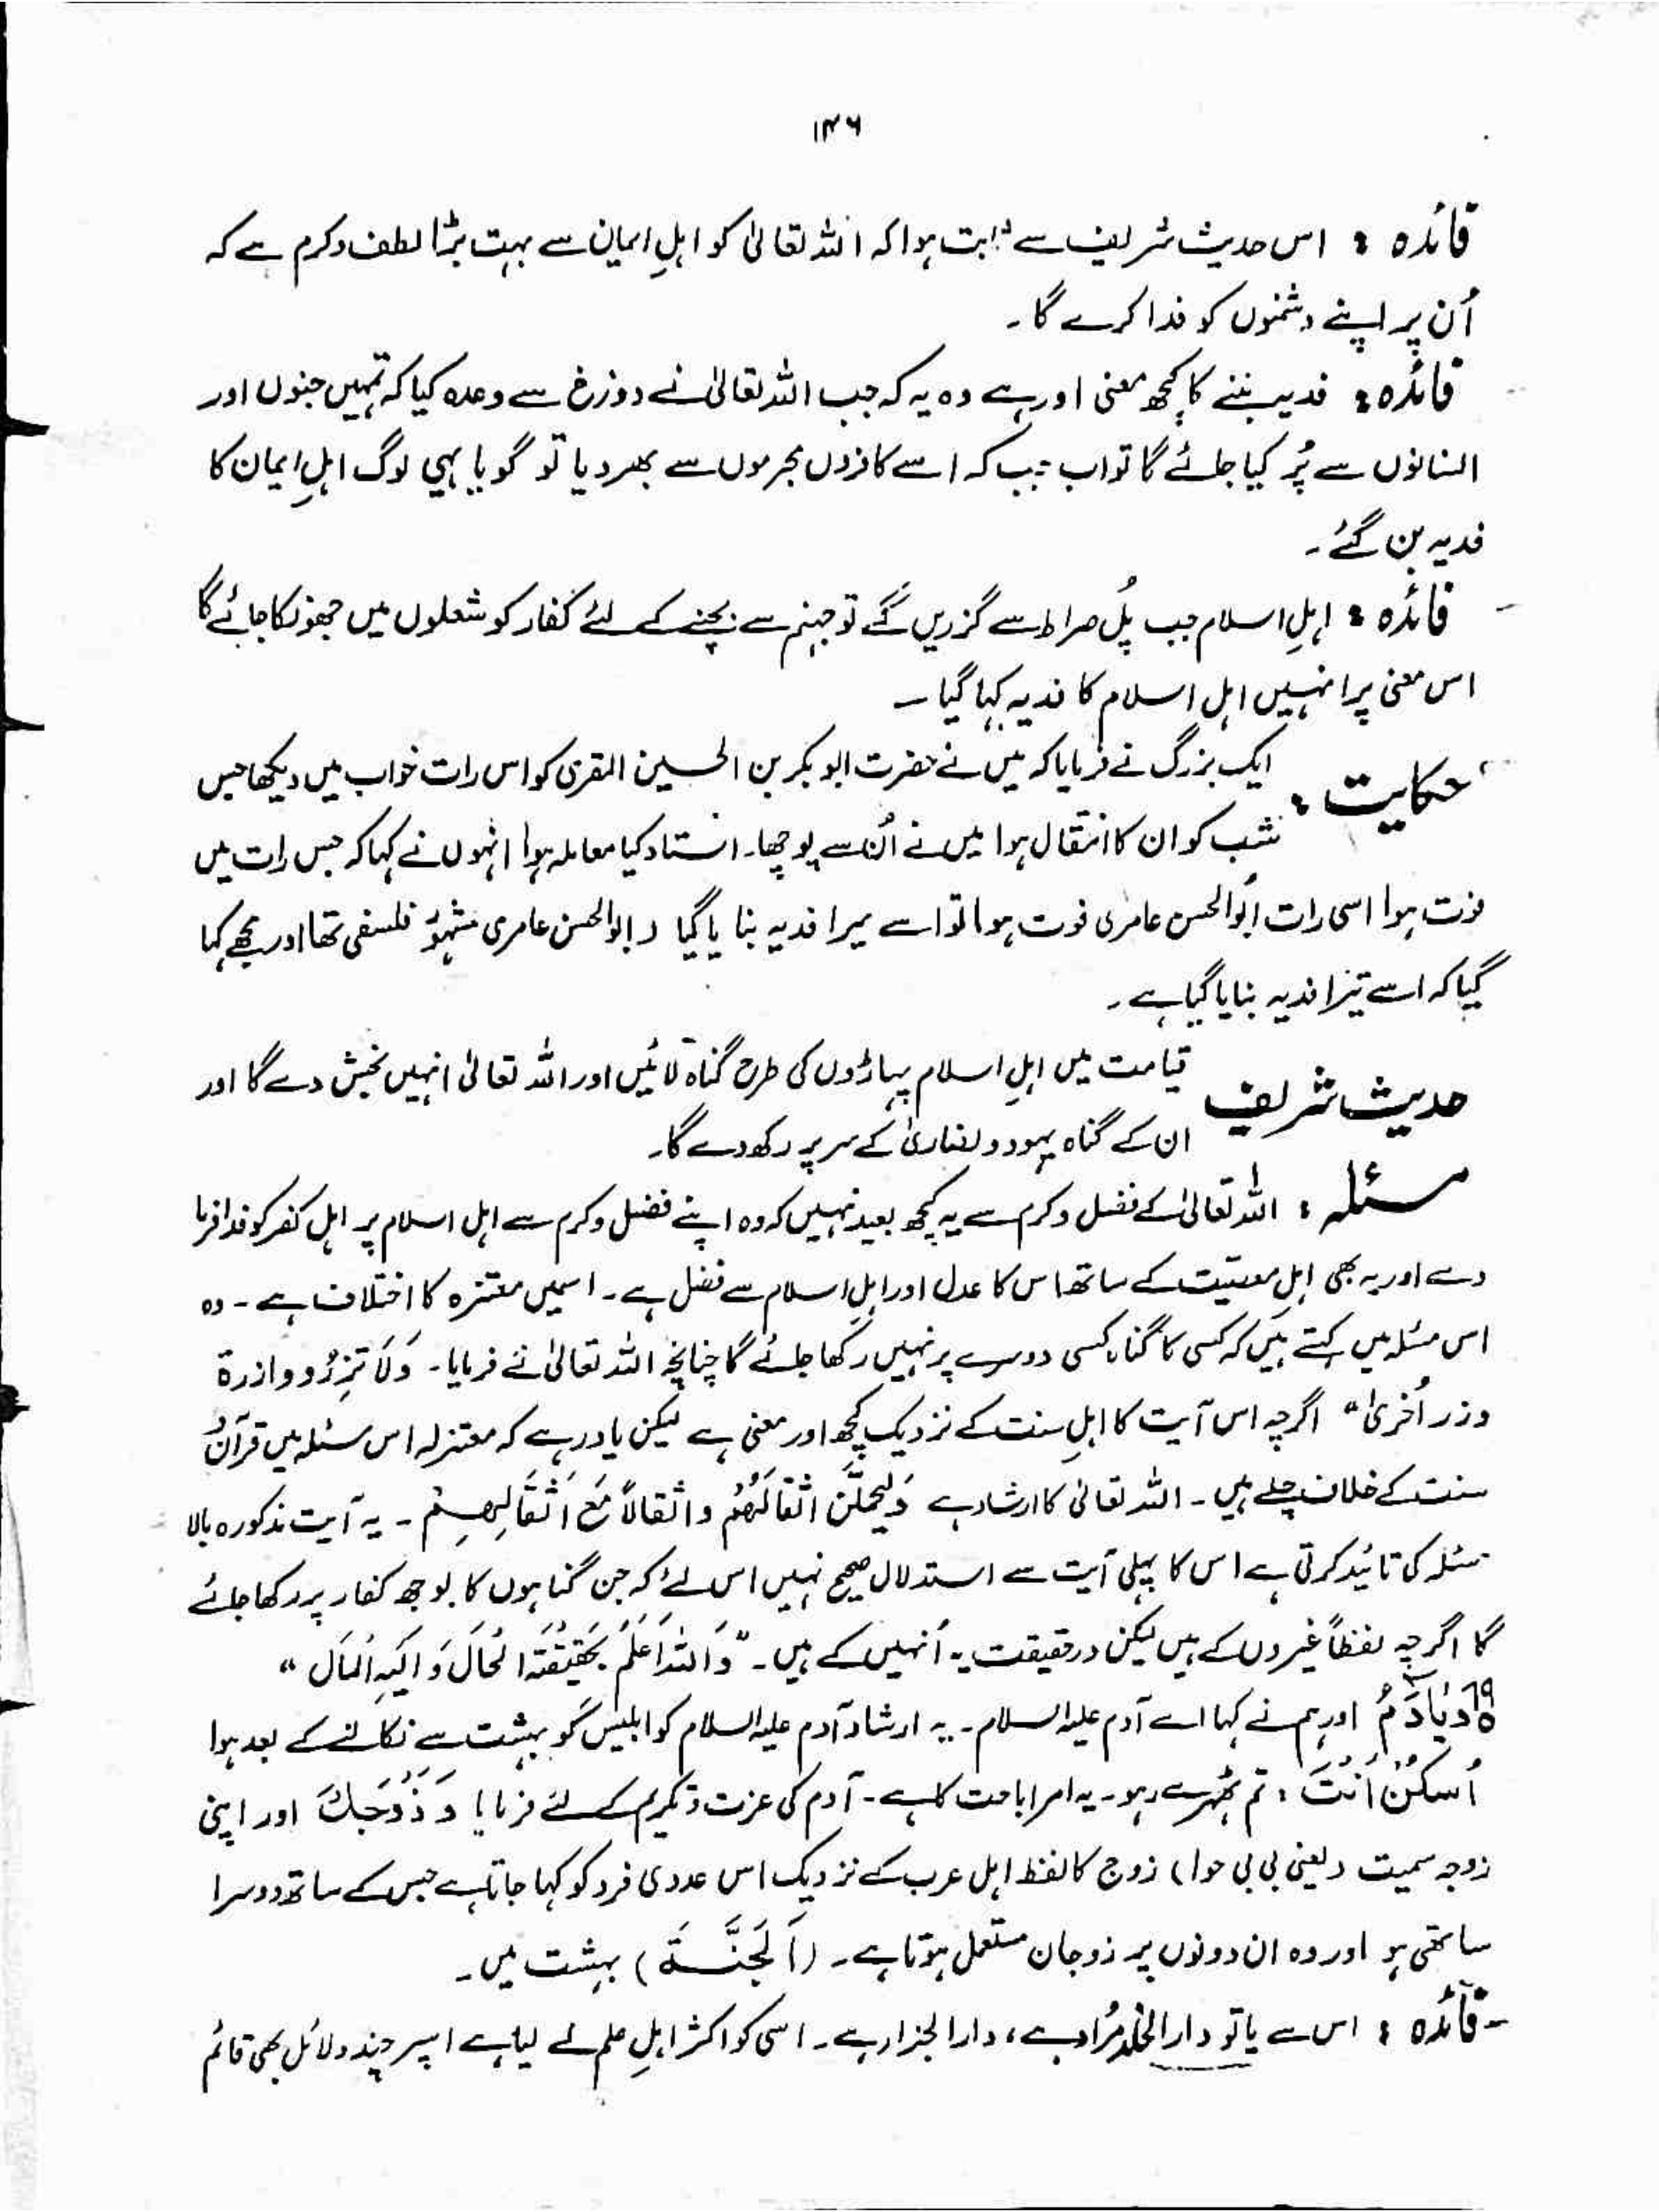 ۱۴۶
فائدہ : اس حدیث شریف سے ثابت ہوا کہ اللہ تعالیٰ کو اہلِ ایمان سے بہت بڑا لطف و کرم ہے کہ
اُن پر اپنے دشمنوں کو فدا کرے گا ۔
فائدہ : فدیہ بننے کا کچھ معنی اور ہے وہ یہ کہ جب اللہ تعالیٰ نے دوزخ سے وعدہ کیا کہ تمہیں جنوں اور
انسانوں سے پُر کیا جائے گا تو اب جب کہ اسے کافروں مجرموں سے بھر دیا تو گویا یہی لوگ اہلِ ایمان کا
فدیہ بن گئے ۔
فائدہ : اہلِ اسلام جب پُل صراط سے گزریں گے تو جہنم سے بچنے کے لئے کفار کو شعلوں میں جھونکا جائے گا
اس معنی پر انہیں اہل اسلام کا فدیہ کہا گیا ۔
حکایت : ایک بزرگ نے فرمایا کہ میں نے حضرت ابو بکر بن الحسین المقری کو اس رات خواب میں دیکھا جس
شب کو ان کا انتقال ہوا میں نے اُن سے پوچھا۔ استاد کیا معاملہ ہوا انہوں نے کہا کہ جس رات میں
فوت ہوا اسی رات ابوالحسن عامری فوت ہوا تو اسے میرا فدیہ بنا یا گیا (ابوالحسن عامری مشہور فلسفی تھا اور مجھے کہا
گیا کہ اسے تیرا فدیہ بنایا گیا ہے ۔
حدیث شریف قیامت میں اہلِ اسلام پہاڑوں کی طرح گناہ لائیں اور اللہ تعالیٰ انہیں بخش دے گا اور
ان کے گناہ یہود و نصاریٰ کے سر پر رکھ دے گا۔
مسئلہ : اللہ تعالیٰ کے فضل و کرم سے یہ کچھ بعید نہیں کہ وہ اپنے فضل و کرم سے اہل اسلام پر اہل کفر کو فدا فرما
دے اور یہ بھی اہل معصیت کے ساتھ اس کا عدل اور اہلِ اسلام سے فضل ہے ۔ اسمیں معتزہ کا اختلاف ہے ۔ وہ
اس مسئلہ میں کہتے ہیں کہ کسی کا گناہ کسی دوسرے پر نہیں رکھا جائے گا چنانچہ اللہ تعالیٰ نے فرمایا ۔ وَلَا تَزِرُو وازرة
وزر اُخریٰ" اگرچہ اس آیت کا اہلِ سنت کے نزدیک کچھ اور معنی ہے لیکن یاد رہے کہ معتزلہ اس مسئلہ میں قرآن
سنت کے خلاف چلے ہیں ۔ اللہ تعالیٰ کا ارشاد ہے وَلَیَحمِلُنَّ اَثْقَالَهُمْ و اثقالاً مَّعَ اَثْقَالِهِمْ ۔ یہ آیت مذکورہ بالا
مسئلہ کی تائید کرتی ہے اس کا پہلی آیت سے استدلال صحیح نہیں اس لئے کہ جن گناہوں کا بوجھ کفار پر رکھا جائے
گا اگرچہ لفظاً غیروں کے ہیں لیکن درحقیقت یہ اُنہیں کے ہیں ۔ "وَاللہُ اَعْلَمُ بِحَقِیْقَةِ الْحَالِ وَ اِلَیْهِ الْمَآل"
وَیٰاٰدَمُ اور ہم نے کہا اے آدم علیہ السلام ۔ یہ ارشاد آدم علیہ السلام کو ابلیس کو بہشت سے نکالنے کے بعد ہوا
اُسْکُنْ اَنْتَ : تم ٹھہرے رہو۔ یہ امر اباحت کا ہے ۔ آدم کی عزت و تکریم کے لئے فرمایا وَ زَوْجَكَ اور اپنی
زوجہ سمیت (یعنی بی بی حوا) زوج کا لفظ اہل عرب کے نزدیک اس عددی فرد کو کہا جاتا ہے جس کے ساتھ دوسرا
ساتھی ہو اور وہ ان دونوں پر زوجان مستعمل ہوتا ہے ۔ (اَلْجَنَّةَ) بہشت میں ۔
فائدہ : اس سے یا تو دارالخلد مُراد ہے ، دارالجزا ہے ۔ اسی کو اکثر اہلِ علم نے لیا ہے اسپر چند دلائل بھی قائم